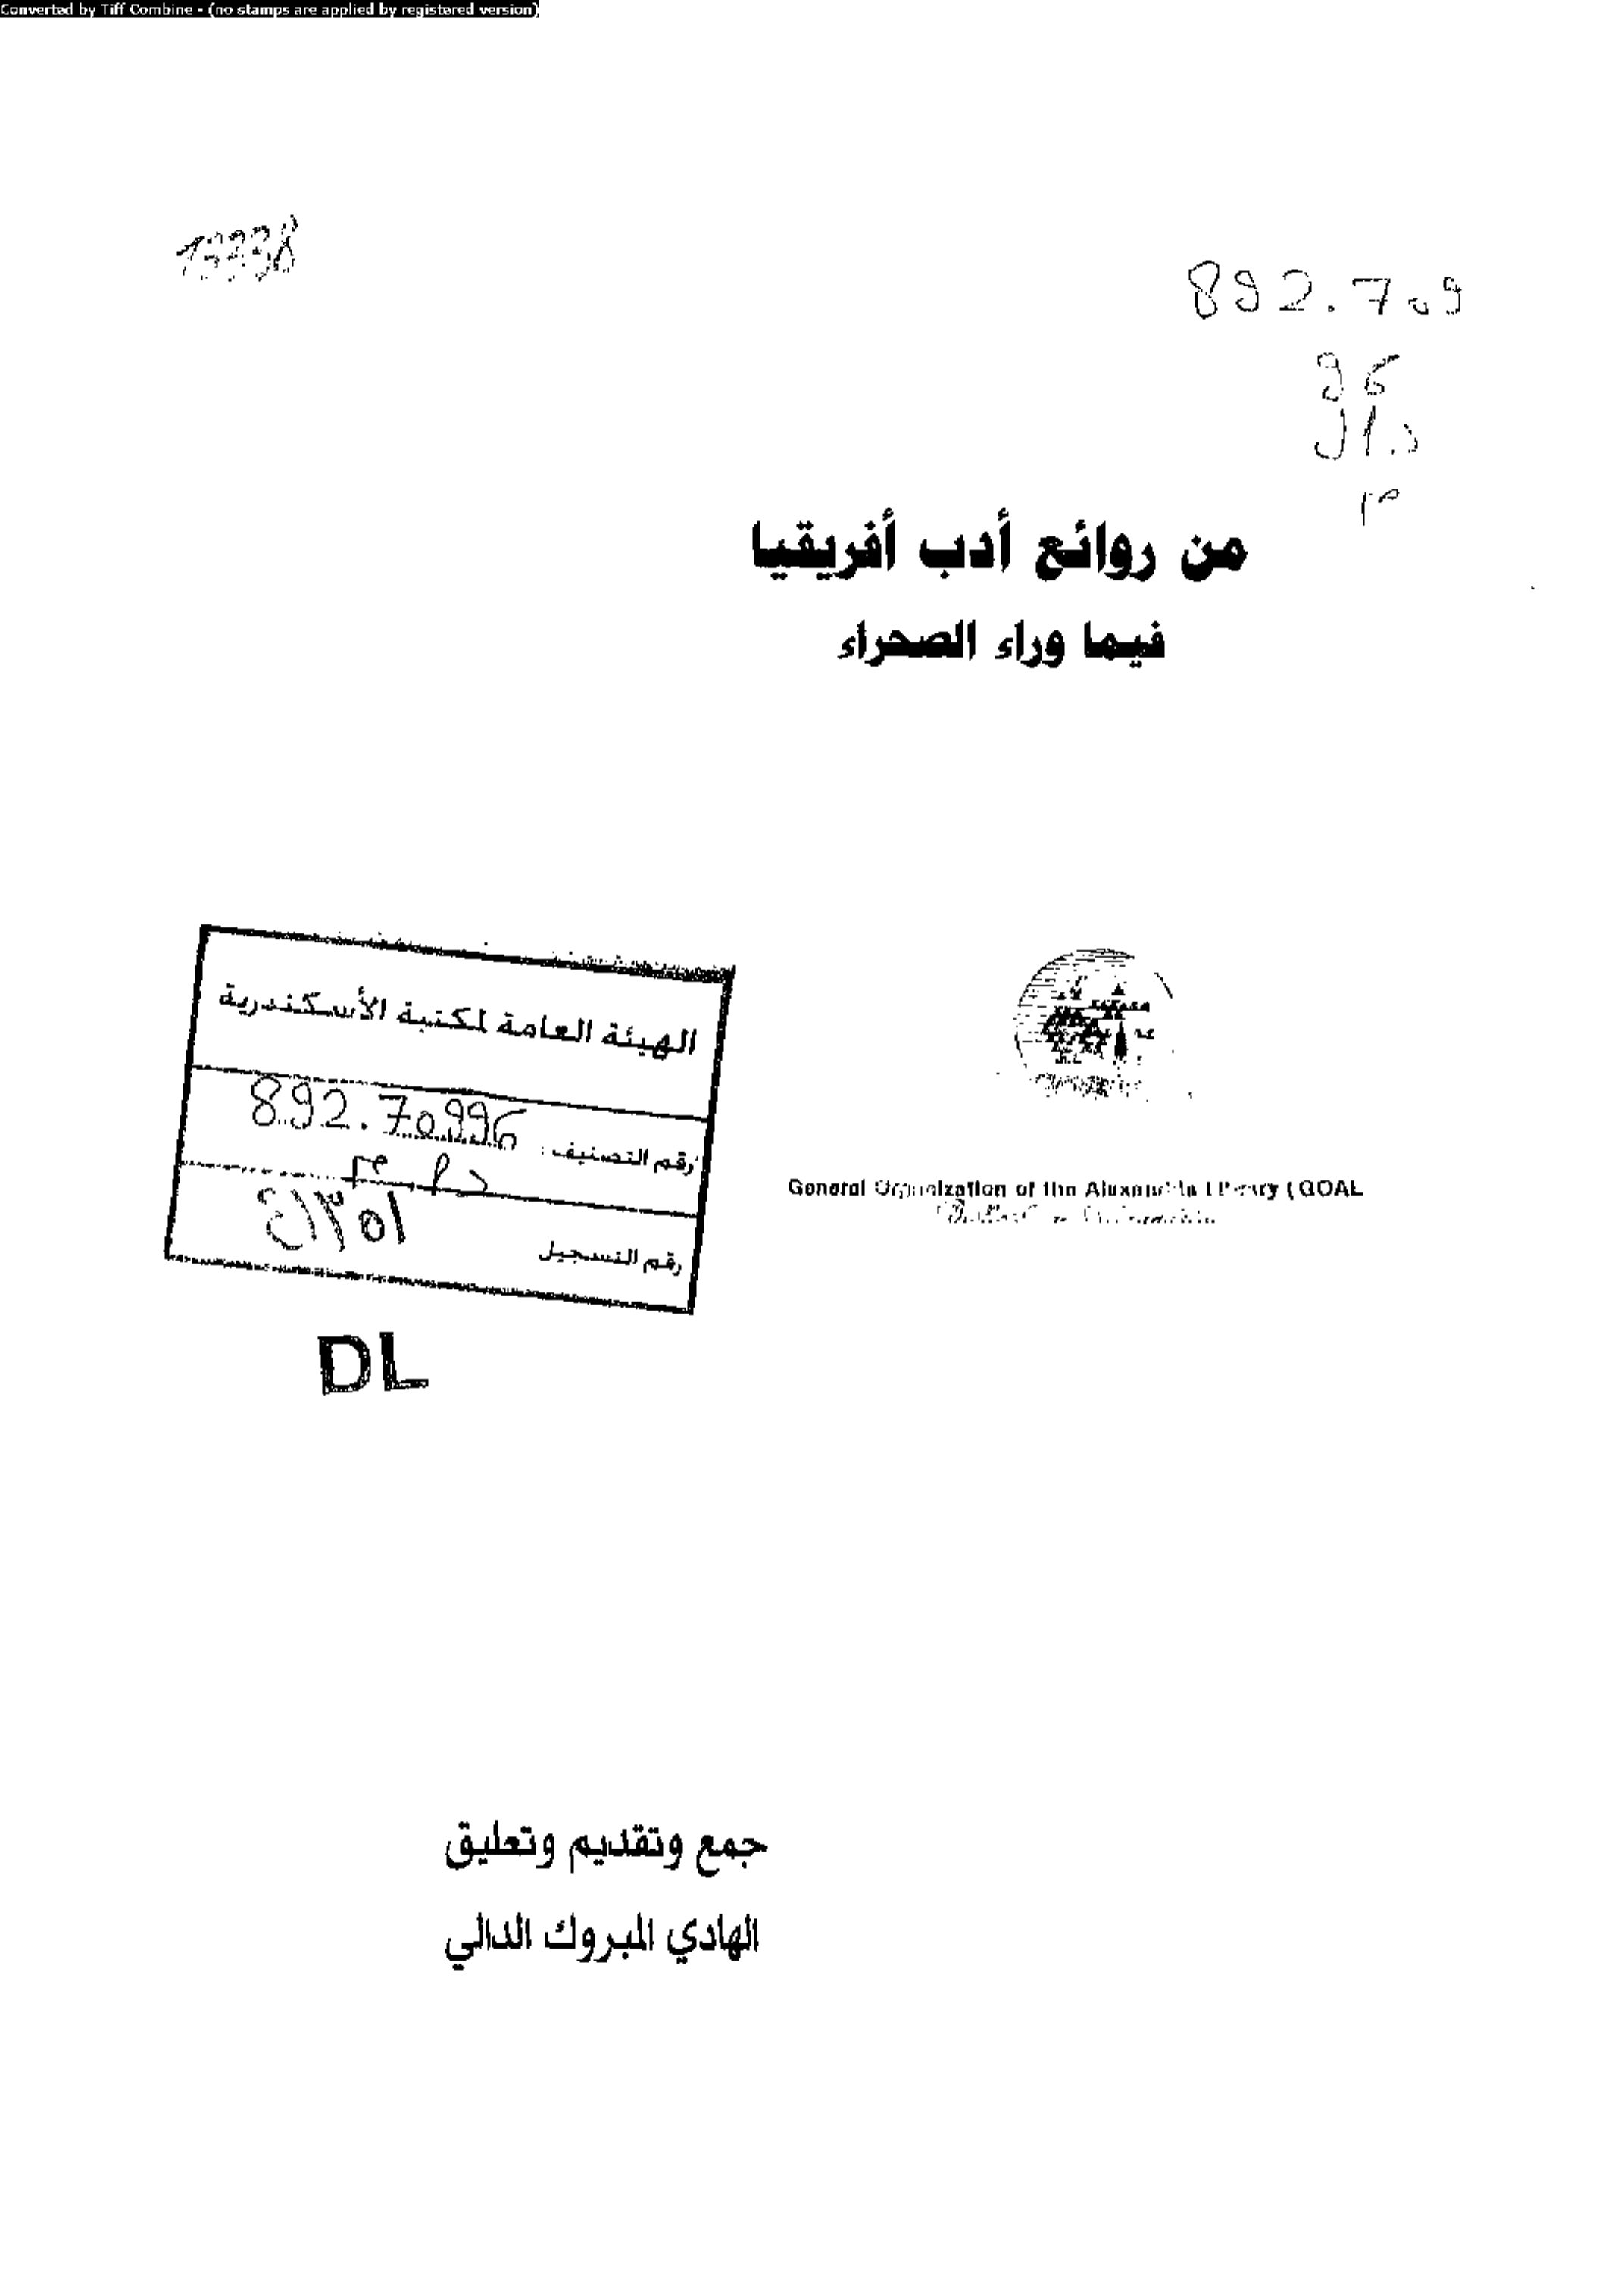 Converted by Tiff Combine - (no stamps are applied by registered version)
892.709
96
د ا ل
م
من روائع أدب أفريقيا
فيما وراء الصحراء
الهيئة العامة لمكتبة الأسكندرية
رقم التصنيف : 892.70996
رقم التسجيل
General Organization of the Alexandria Library (GOAL
DL
جمع وتقديم وتعليق
الهادي المبروك الدالي